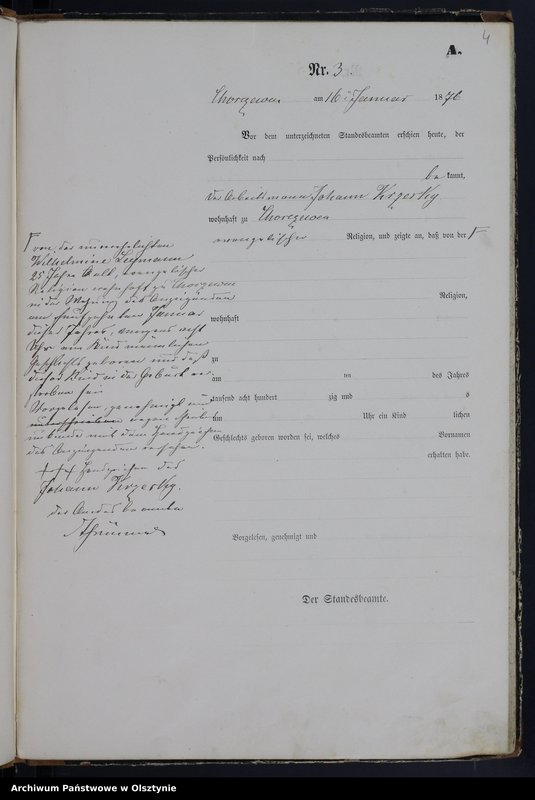 4
A.
Nr. 3
Chorzewen am 16 Januar 1876
Vor dem unterzeichneten Standesbeamten erschien heute, der
Persönlichkeit nach
be kannt,
der Arbeitsmann Johann
wohnhaft zu Chorzewen
evangelischer Religion, und zeigte an, daß von der
von der unverehelichten
Wilhelmine Lehmann
25 Jahre alt, evangelischer
Religion wohnhaft zu Chorzewen
in der Wohnung des
am fünfzehnten Januar
dieses Jahres, morgens acht
Uhr ein Kind männlichen
Geschlechts geboren und daß
dieses Kind in der Geburt
sei
Vorgelesen, genehmigt und
unterschrieben wegen
mit dem Handzeichen
des Anzeigenden versehen.
+++ Handzeichen des
Johann
der Standesbeamte
Religion,
wohnhaft
zu
am ten des Jahres
tausend acht hundert zig und s
um Uhr ein Kind lichen
Geschlechts geboren worden sei, welches Vornamen
erhalten habe.
Vorgelesen, genehmigt und
Der Standesbeamte.
Archiwum Państwowe w Olsztynie